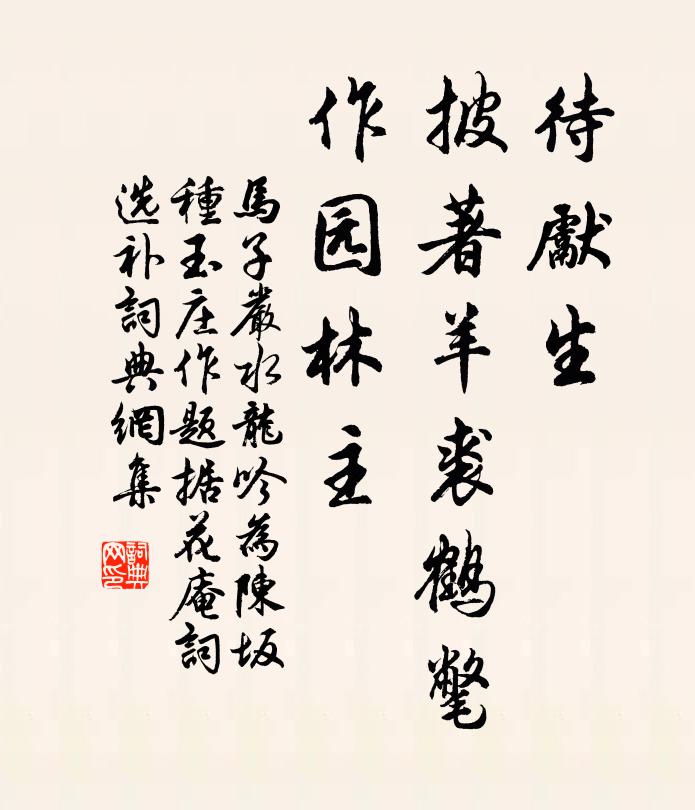 待獻生
披著羊裘鶴氅
作园林主
馬子嚴水龍吟為陳坂
種玉庄作题据花庵詞
选补詞典網集
詞典
网印